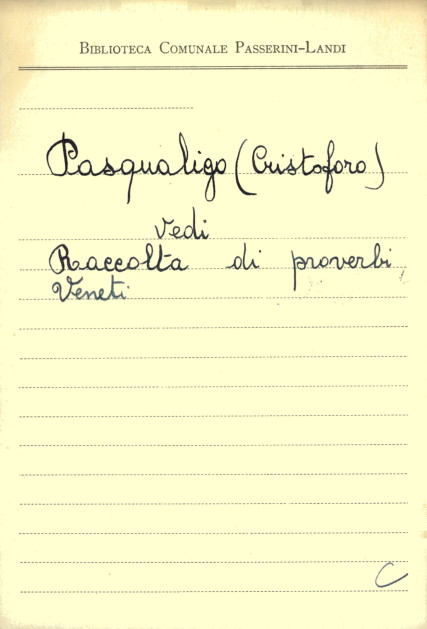 Biblioteca Comunale Passerini-Landi
Pasqualigo (Cristoforo)
Vedi
Raccolta di proverbi
Veneti
C